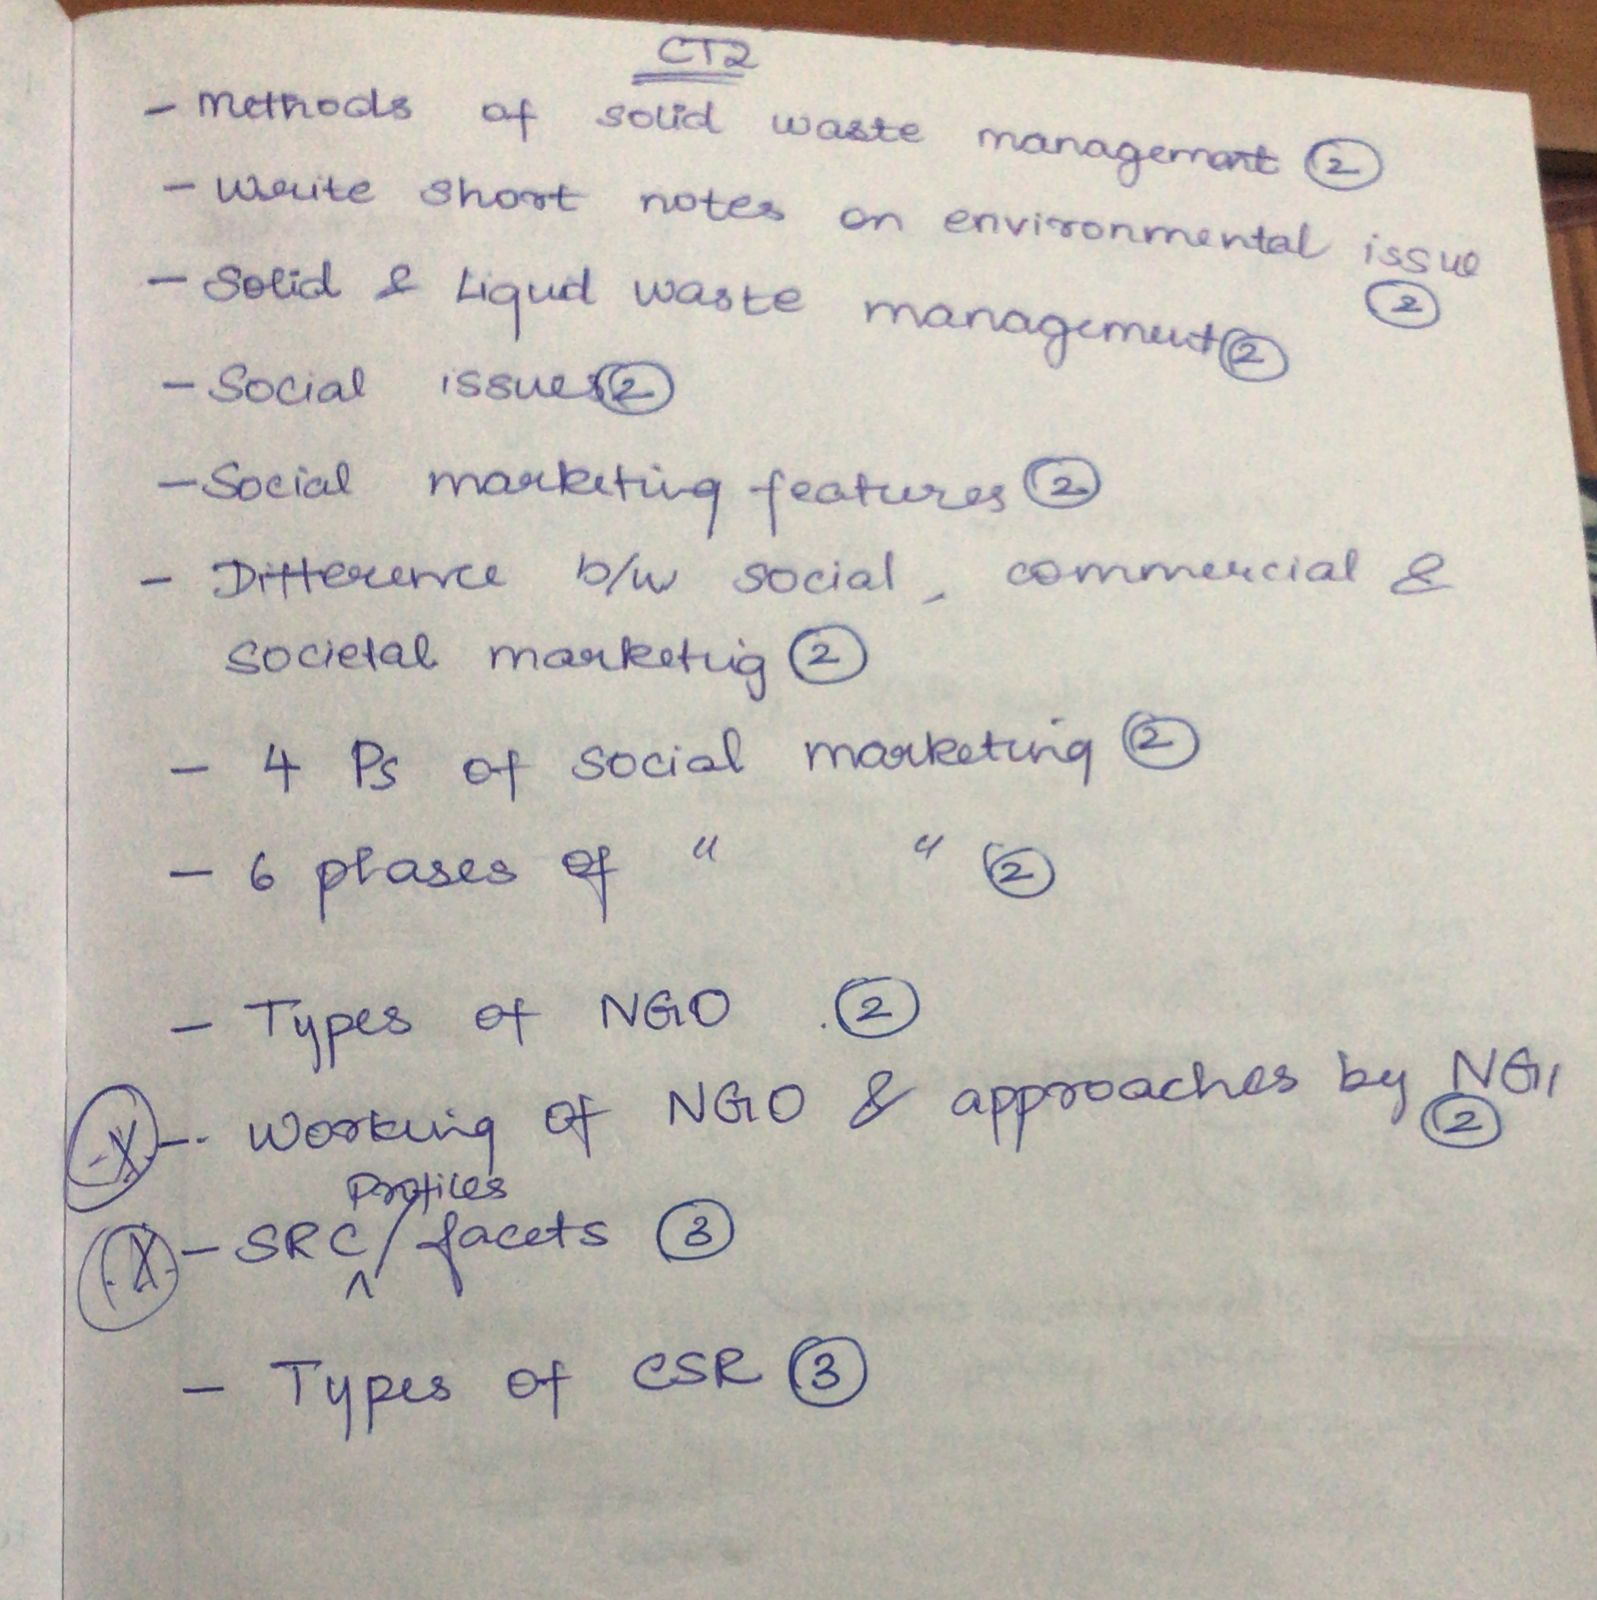 CT2
- Methods of solid waste management ②
- Write short notes on environmental issue
②
- Solid & Liqud waste management ②
- Social issues ②
- Social marketing features ②
- Difference b/w social, commercial &
societal marketing ②
- 4 Ps of social marketing ②
- 6 phases of " " ②
- Types of NGO . ②
X -.. Working of NGO & approaches by NG
②
Profiles
X - SRC ^ / facets ③
- Types of CSR ③